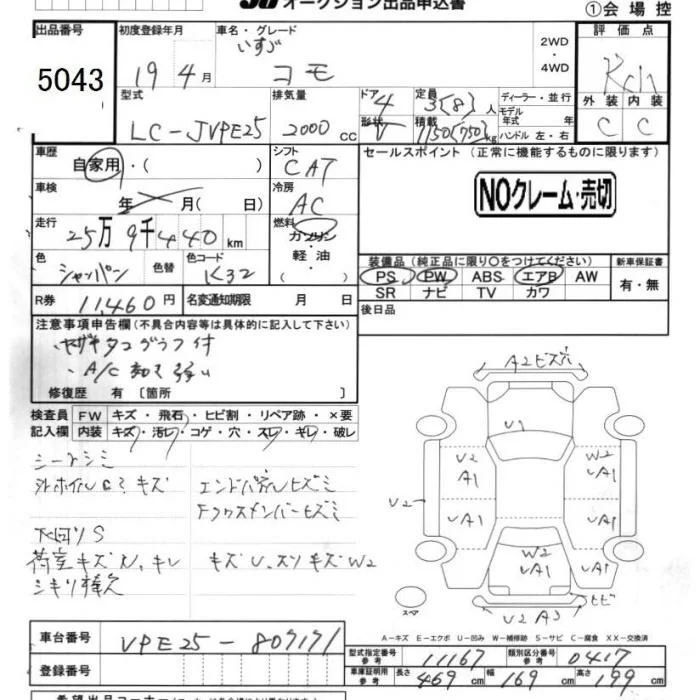 オークション出品申込書
①会場控
出品番号 初度登録年月 車名・グレード 2WD・4WD 評価点
5043 19年4月 いすゞ コモ
外装 内装
C C
型式 排気量 ドア 定員 ディーラー・並行
LC-JVPE25 2000cc 4 3(8)人 モデル年式 年
形状 V 積載 1150(750)kg ハンドル 左・右
車歴 シフト セールスポイント(正常に機能するものに限ります)
自家用・( ) CAT
NOクレーム・売切
車検 冷房
年 月( 日) AC
走行 燃料
25万9千440km ガソリン・軽油・( )
装備品(純正品に限り○をつけてください) 新車保証書
色 色替 色コード
シャンパン K32
PS PW ABS エアB AW 有・無
SR ナビ TV カワ
R券 11,460円 名変通知期限 月 日
後日品
注意事項申告欄(不具合内容等は具体的に記入して下さい)
ヤザキタコグラフ付
A/C 弱い
修復歴 有 〔箇所 〕
検査員 FW キズ・飛石・ヒビ割・リペア跡・×要
記入欄 内装 キズ・汚レ・コゲ・穴・スレ・キレ・破レ
シートシミ
外ホイルCミ キズ エンドパネルヒズミ
Fクロスメンバーヒズミ
下回りS
荷室キズ U、キレ キズU、スリキズW2
シキリ棒欠
A2ヒズ穴
U1
U2 A1 W2 UA1
U2
UA1 UA1
W2
UA1 UA1
ヒビ
U2 A3
スペア
A-キズ E-エクボ U-凹み W-補修跡 S-サビ C-腐食 XX-交換済
車台番号 VPE25-809171
型式指定番号 参考 11167 類別区分番号 参考 0417
登録番号
車庫証明用 参考 長さ 469cm 幅 169cm 高さ 199cm
希望出品コーナー